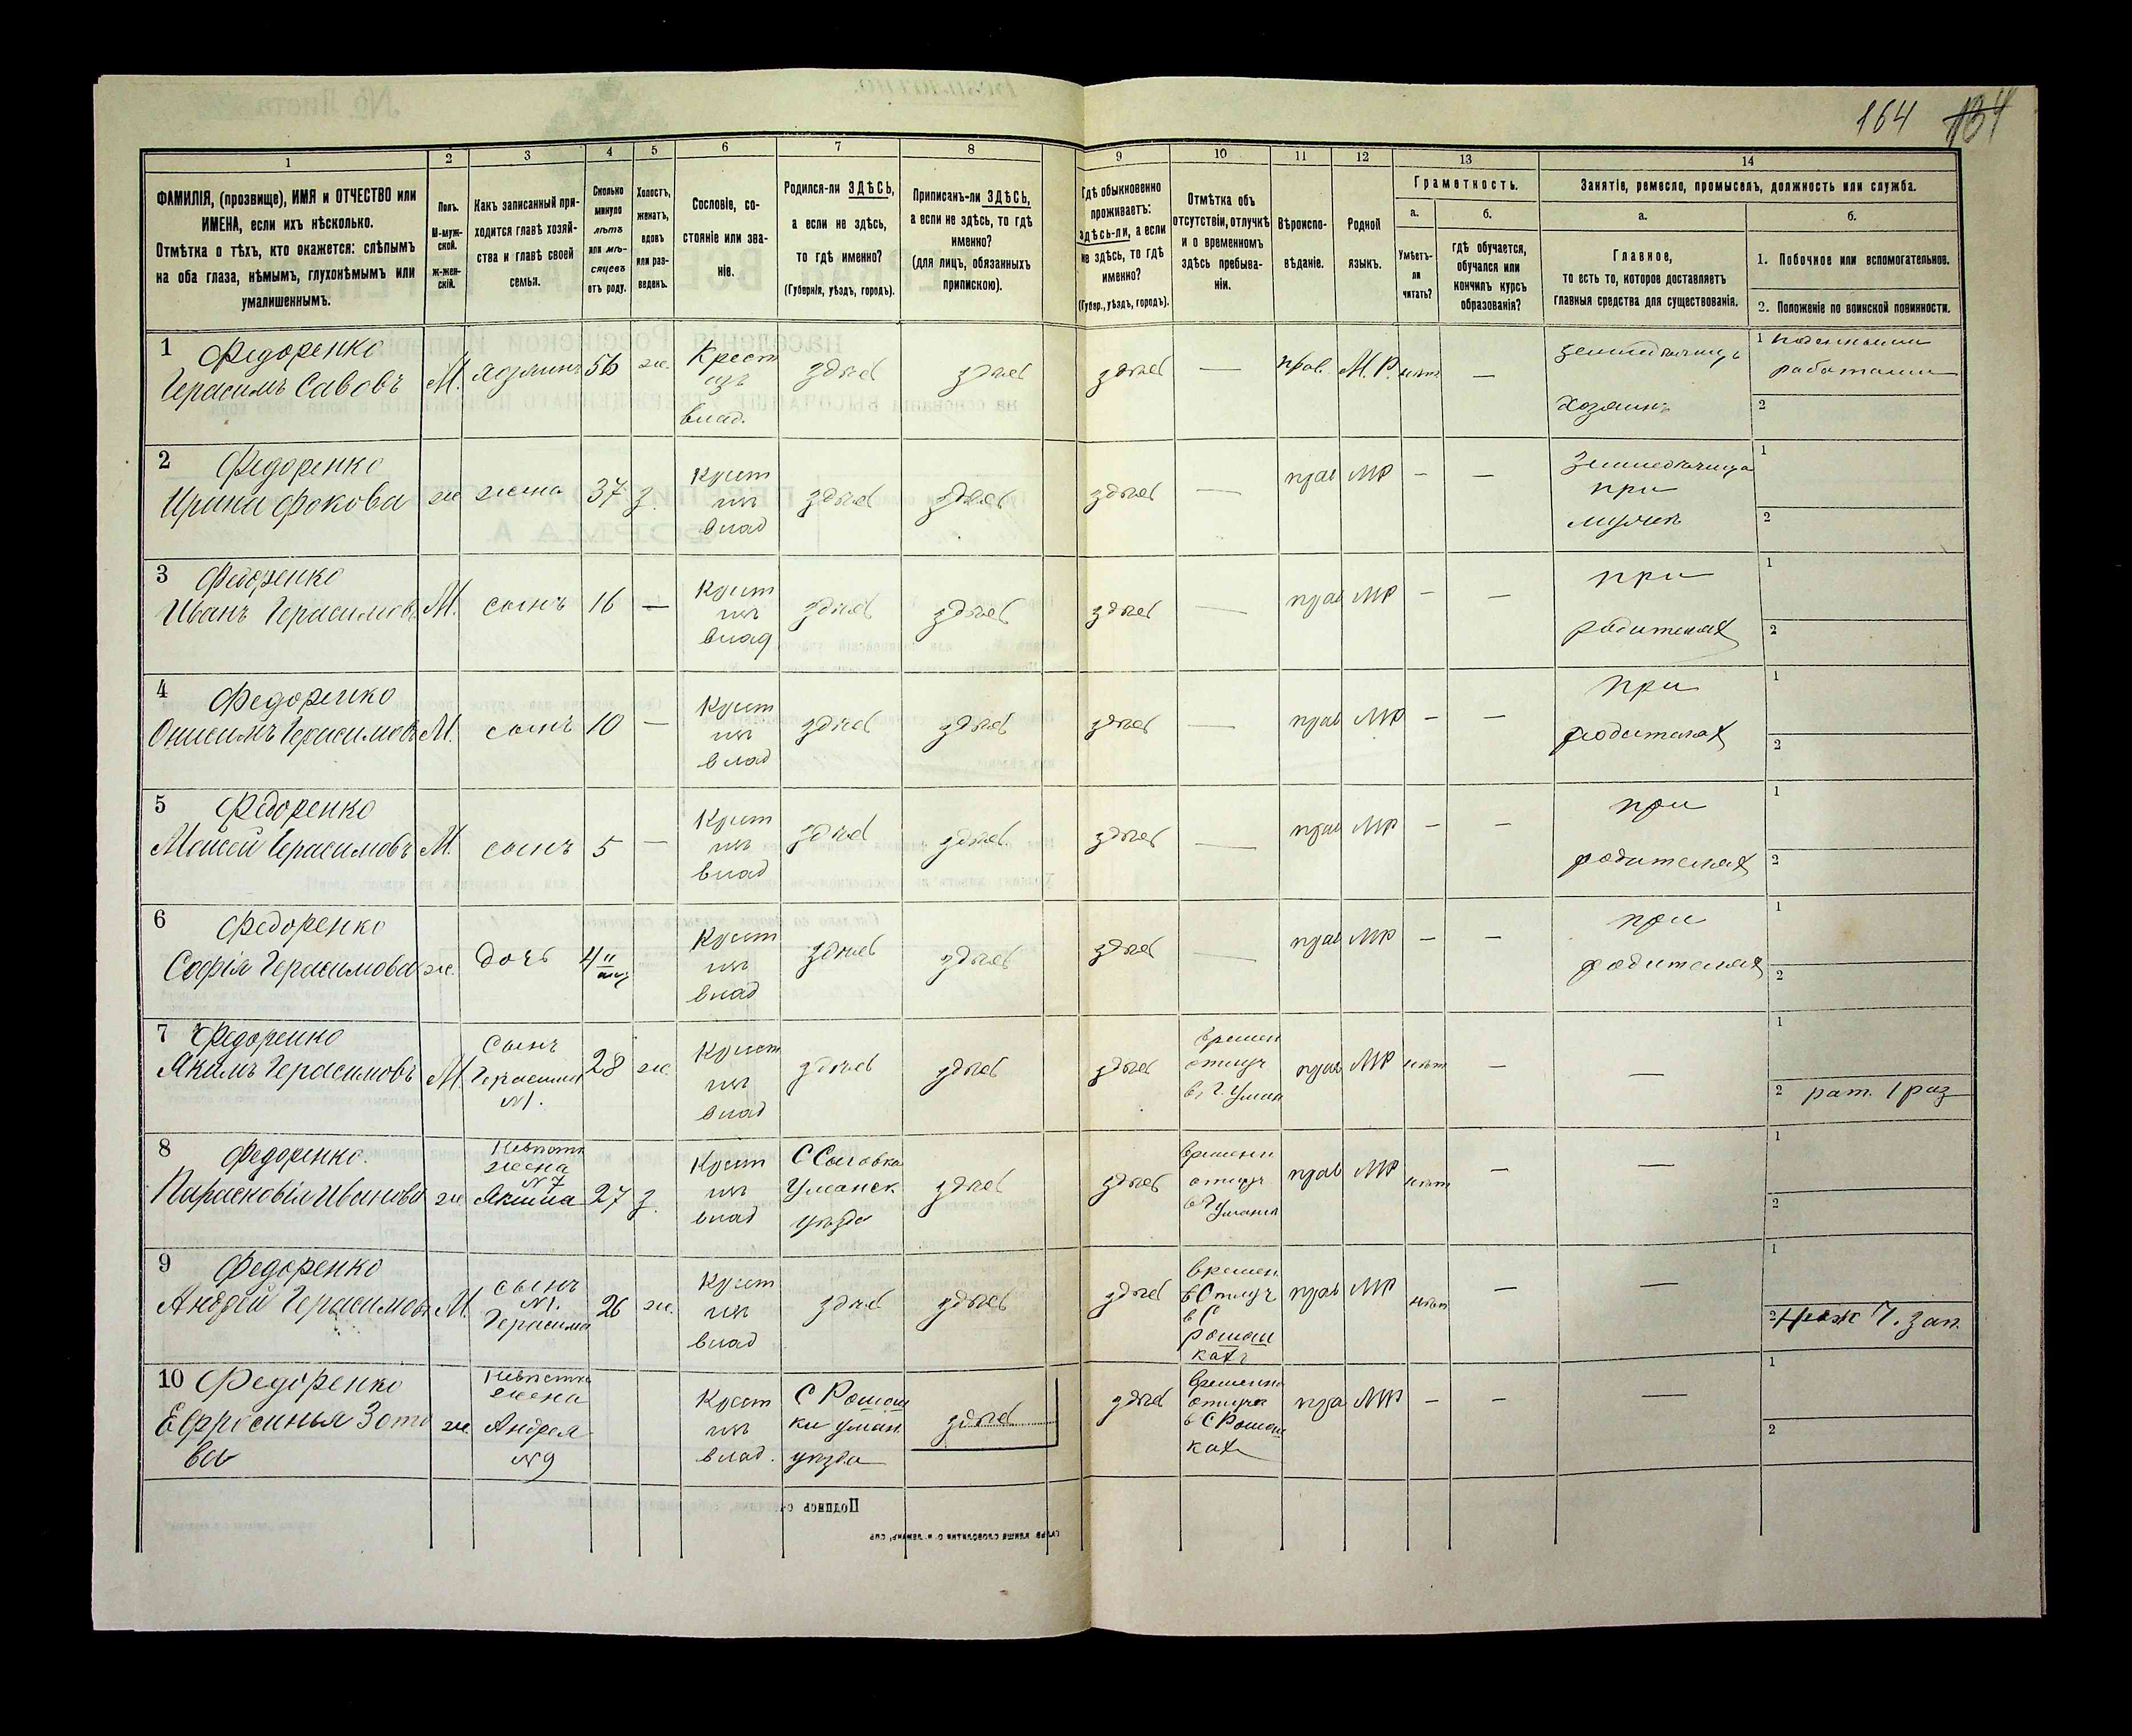 164 134
1
2
3
4
5
6
7
8
9
10
11
12
13
14
ФАМИЛІЯ, (прозвище), ИМЯ и ОТЧЕСТВО или
ИМЕНА, если ихъ нѣсколько.
Отмѣтка о тѣхъ, кто окажется: слѣпымъ
на оба глаза, нѣмымъ, глухонѣмымъ или
умалишеннымъ.
Полъ.
М-муж-
ской.
ж-жен-
скій.
Какъ записанный при-
ходится главѣ хозяй-
ства и главѣ своей
семьи.
Сколько
минуло
лѣтъ
или мѣ-
сяцевъ
отъ роду.
Холостъ,
женатъ,
вдовъ
или раз-
веденъ.
Сословіе, со-
стояніе или зва-
ніе.
Родился-ли ЗДѢСЬ,
а если не здѣсь,
то гдѣ именно?
(Губернія, уѣздъ, городъ).
Приписанъ-ли ЗДѢСЬ,
а если не здѣсь, то гдѣ
именно?
(для лицъ, обязанныхъ
припискою).
Гдѣ обыкновенно
проживаетъ:
здѣсь-ли, а если
не здѣсь, то гдѣ
именно?
(Губер., уѣздъ, городъ).
Отмѣтка объ
отсутствіи, отлучкѣ
и о временномъ
здѣсь пребыва-
ніи.
Вѣроиспо-
вѣданіе.
Родной
языкъ.
Грамотность.
а.
Умѣетъ-
ли
читать?
б.
гдѣ обучается,
обучался или
кончилъ курсъ
образованія?
Занятіе, ремесло, промыселъ, должность или служба.
а.
Главное,
то есть то, которое доставляетъ
главныя средства для существованія.
б.
1. Побочное или вспомогательное.
2. Положеніе по воинской повинности.
1 Федоренко
Герасимъ Савовъ
М.
хозяинъ
56
ж.
Крест
изъ
влад.
здѣсь
здѣсь
здѣсь
—
прав.
М.Р.
нѣтъ
—
хозяинъ
1 поденными
работами
2
2 Федоренко
Ирина Фокова
ж
жена
37
з.
Крест
изъ
влад
здѣсь
здѣсь
здѣсь
—
прав
МР
—
—
при
мужѣ
1
2
3 Федоренко
Иванъ Герасимовъ
М.
сынъ
16
—
Крест
изъ
влад
здѣсь
здѣсь
здѣсь
—
прав
МР
—
—
при
родителях
1
2
4 Федоренко
Онисимъ Герасимовъ
М.
сынъ
10
—
Крест
изъ
влад
здѣсь
здѣсь
здѣсь
—
прав
МР
—
—
при
родителях
1
2
5 Федоренко
Моисей Герасимовъ
М.
сынъ
5
—
Крест
изъ
влад
здѣсь
здѣсь
здѣсь
—
прав
МР
—
—
при
родителях
1
2
6 Федоренко
Софія Герасимова
ж.
дочь
4
Крест
изъ
влад
здѣсь
здѣсь
здѣсь
—
прав
МР
—
—
при
родителях
1
2
7 Федоренко
Якимъ Герасимовъ
М.
Сынъ
Герасима
№1.
28
ж.
Крест
изъ
влад
здѣсь
здѣсь
здѣсь
времен
отлуч
въ Г. Уман
прав
МР
нѣт
—
—
1
2 рат. 1 раз
8 Федоренко.
Парасковія Иванова
ж
Невѣстк
жена
№7
Якима
27
з.
Крест
изъ
влад
уманск
уѣзда
здѣсь
здѣсь
времени
отлуч
в Г
Умани
прав
МР
нѣт
—
—
1
2
9 Федоренко
Андрей Герасимовъ
М.
сынъ
№1.
Герасима
26
ж.
Крест
изъ
влад
здѣсь
здѣсь
здѣсь
времен.
в Отлуч
в С
рошш
ках
прав
МР
нѣт
—
—
1
2 зап.
10 Федоренко
Евфросинья Зото
ва
ж.
Невѣстка
жена
Андрея
№9
Крест
изъ
влад.
С Рошш
ки уман.
уѣзда
здѣсь
здѣсь
временно
отлучк
в С Рошш
ках
пра
МР
—
—
—
1
2